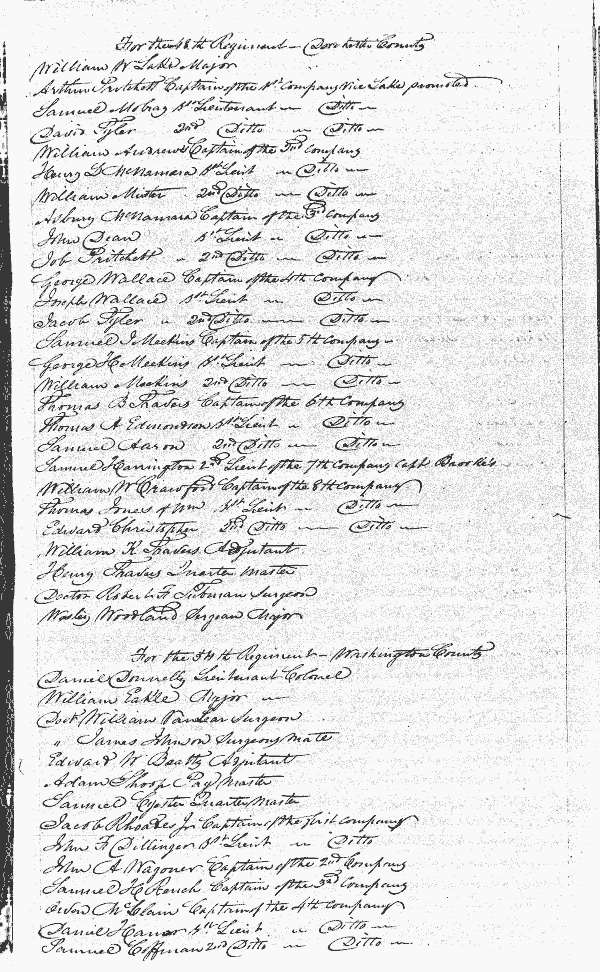 For the 48th Regiment — Dorchester County
William W Lake Major
Arthur Pritchett Captain of the 1st Company Vice Lake promoted
Samuel Mobray 1st Lieutenant — Ditto —
David Tyler 2nd Ditto — Ditto —
William Andrews Captain of the 2nd Company
Henry D McNamara 1st Lieut — Ditto —
William Mister 2nd Ditto — Ditto —
Asbury McNamara Captain of the 3d Company
John Dean 1st Lieut — Ditto —
Job Pritchett — 2nd Ditto — Ditto —
George Wallace Captain of the 4th Company
Joseph Wallace 1st Lieut — Ditto —
Jacob Tyler — 2nd Ditto — Ditto —
Samuel J Meekins Captain of the 5th Company —
George H Meekins 1st Lieut — Ditto —
William Meekins 2nd Ditto — Ditto —
Thomas B Travers Captain of the 6th Company
Thomas A Edmondson 1st Lieut — Ditto —
Samuel Aaron 2nd Ditto — Ditto —
Samuel Harrington 2nd Lieut of the 7th Company Capt Brooke's
William W Crawford Captain of the 8th Company
Thomas Jones of Wm 1st Lieut — Ditto —
Edward Christopher 2nd Ditto — Ditto —
William K Travers Adjutant
Henry Travers Quarter Master
Doctor Robert F Tubman Surgeon
Wesley Woodland Sergean Major
For the 54th Regiment — Washington County
Daniel Donnelly Lieutenant Colonel
William Eakle Major —
Doct. William Vanlear Surgeon
" James Johnson Surgeons mate
Edward W Beatty Adjutant
Adam Shoop Pay Master
Samuel Oyster Quarter Master
Jacob Rhoades Jr Captain of the first Company
John F Dillinger 1st Lieut — Ditto
John A Wagoner Captain of the 2nd Company
Samuel H Rench Captain of the 3d Company
McClain Captain of the 4th Company
Daniel 1st Lieut — Ditto —
Samuel Coffman 2nd Ditto — Ditto —